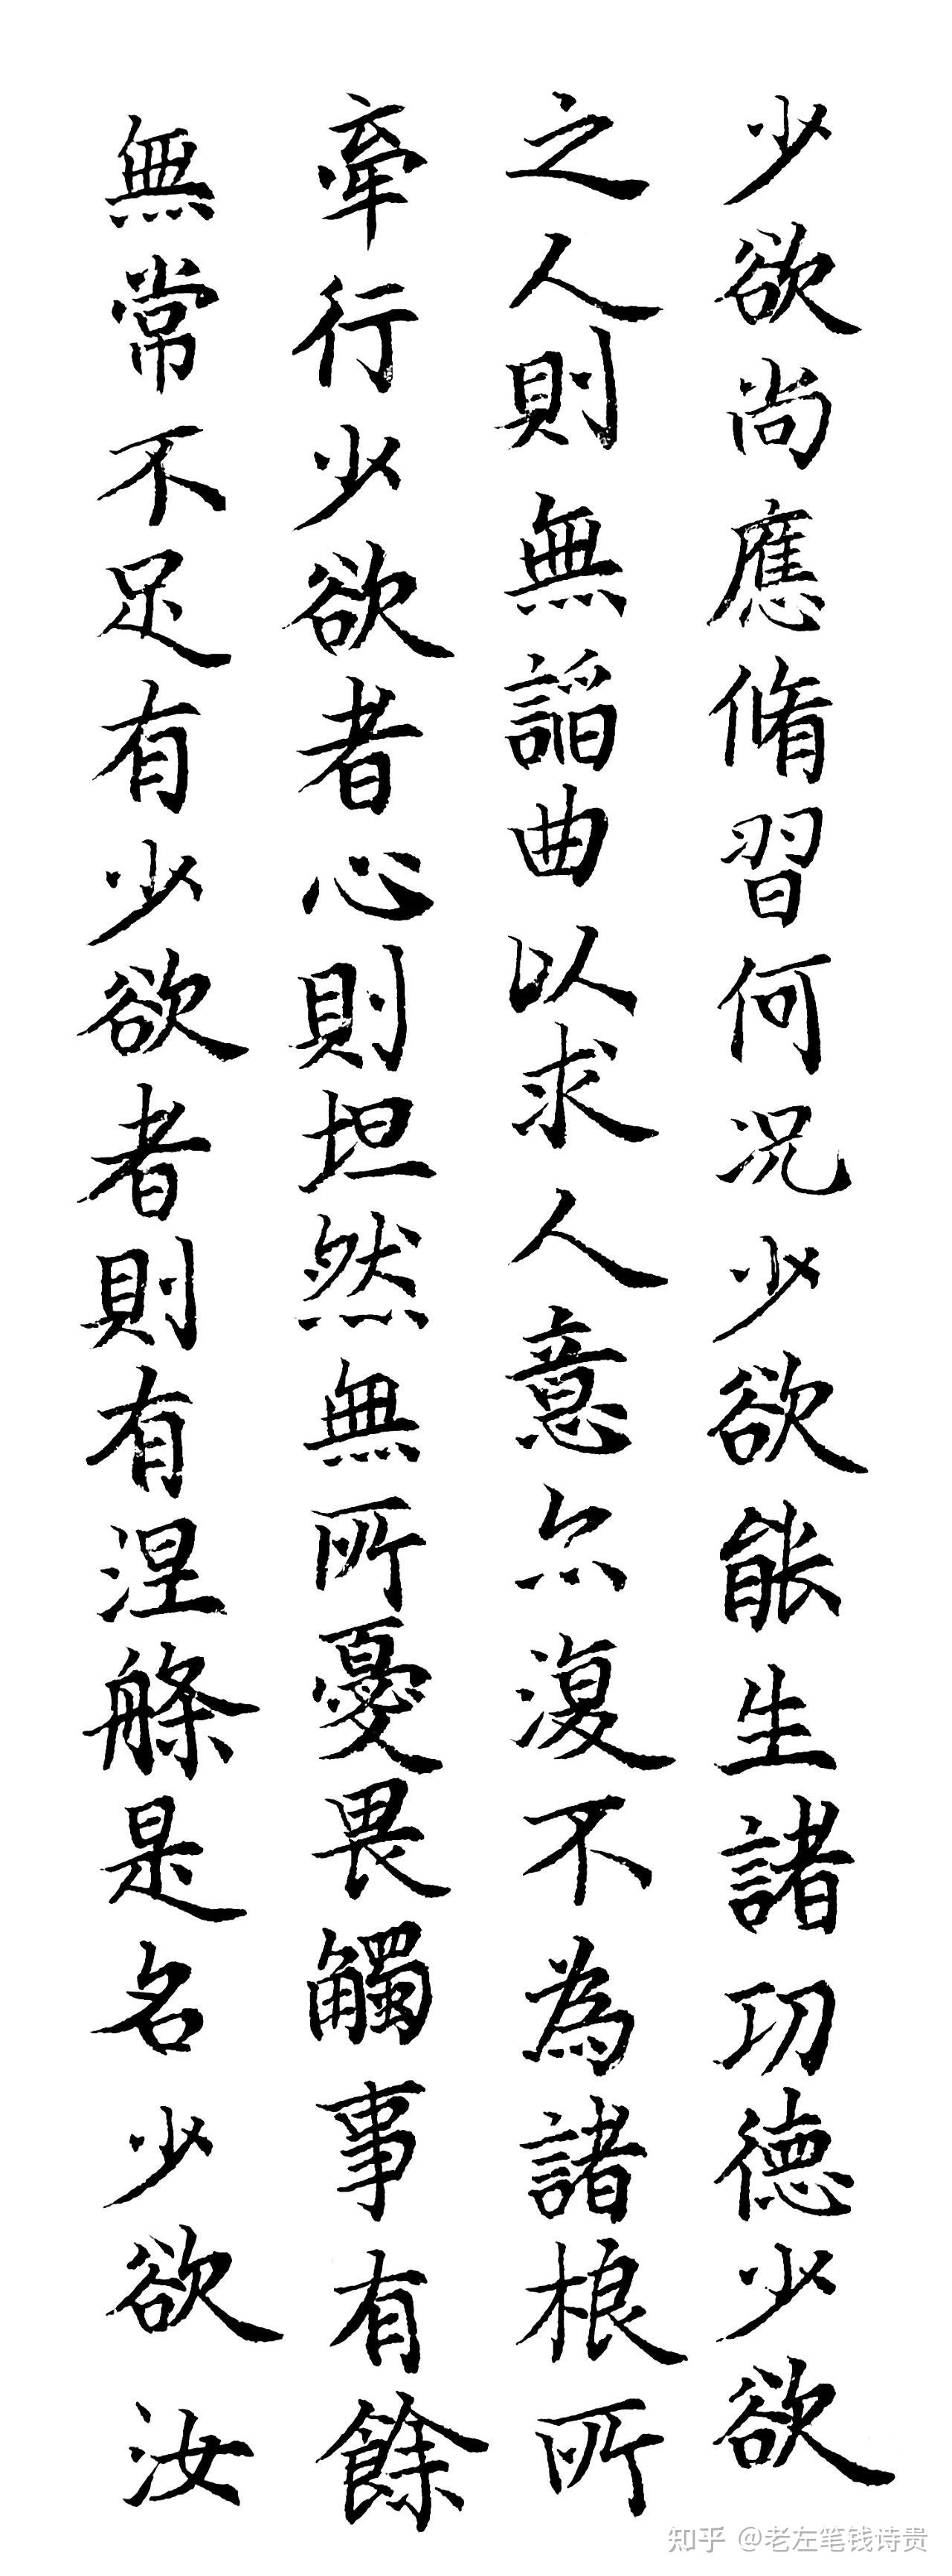 少欲尚應脩習何况少欲能生諸功德少欲
之人則無諂曲以求人意亦復不為諸根所
牽行少欲者心則坦然無所憂畏觸事有餘
無常不足有少欲者則有涅槃是名少欲汝
知乎 @老左笔钱诗贵